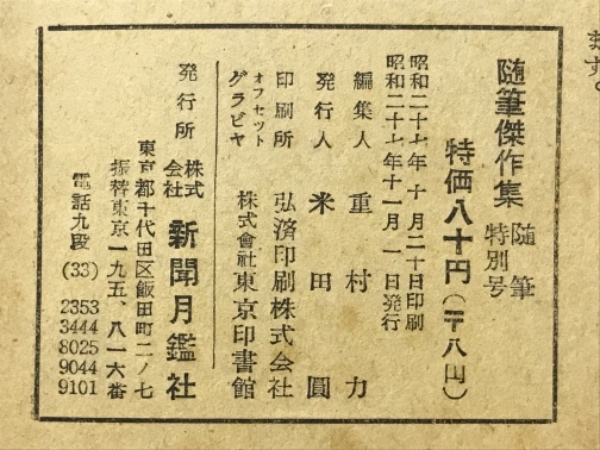 ます。
随筆傑作集 随筆
特別号
特価八十円(〒八円)
昭和二十七年十月二十日印刷
昭和二十七年十一月一日発行
編集人 重村力
発行人 米田圓
印刷所 弘済印刷株式会社
オフセット
グラビヤ 株式會社東京印書館
発行所 株式
会社 新聞月鑑社
東京都千代田区飯田町二ノ七
振替東京一九五、八一六番
電話九段(33) 2353
3444
8025
9044
9101